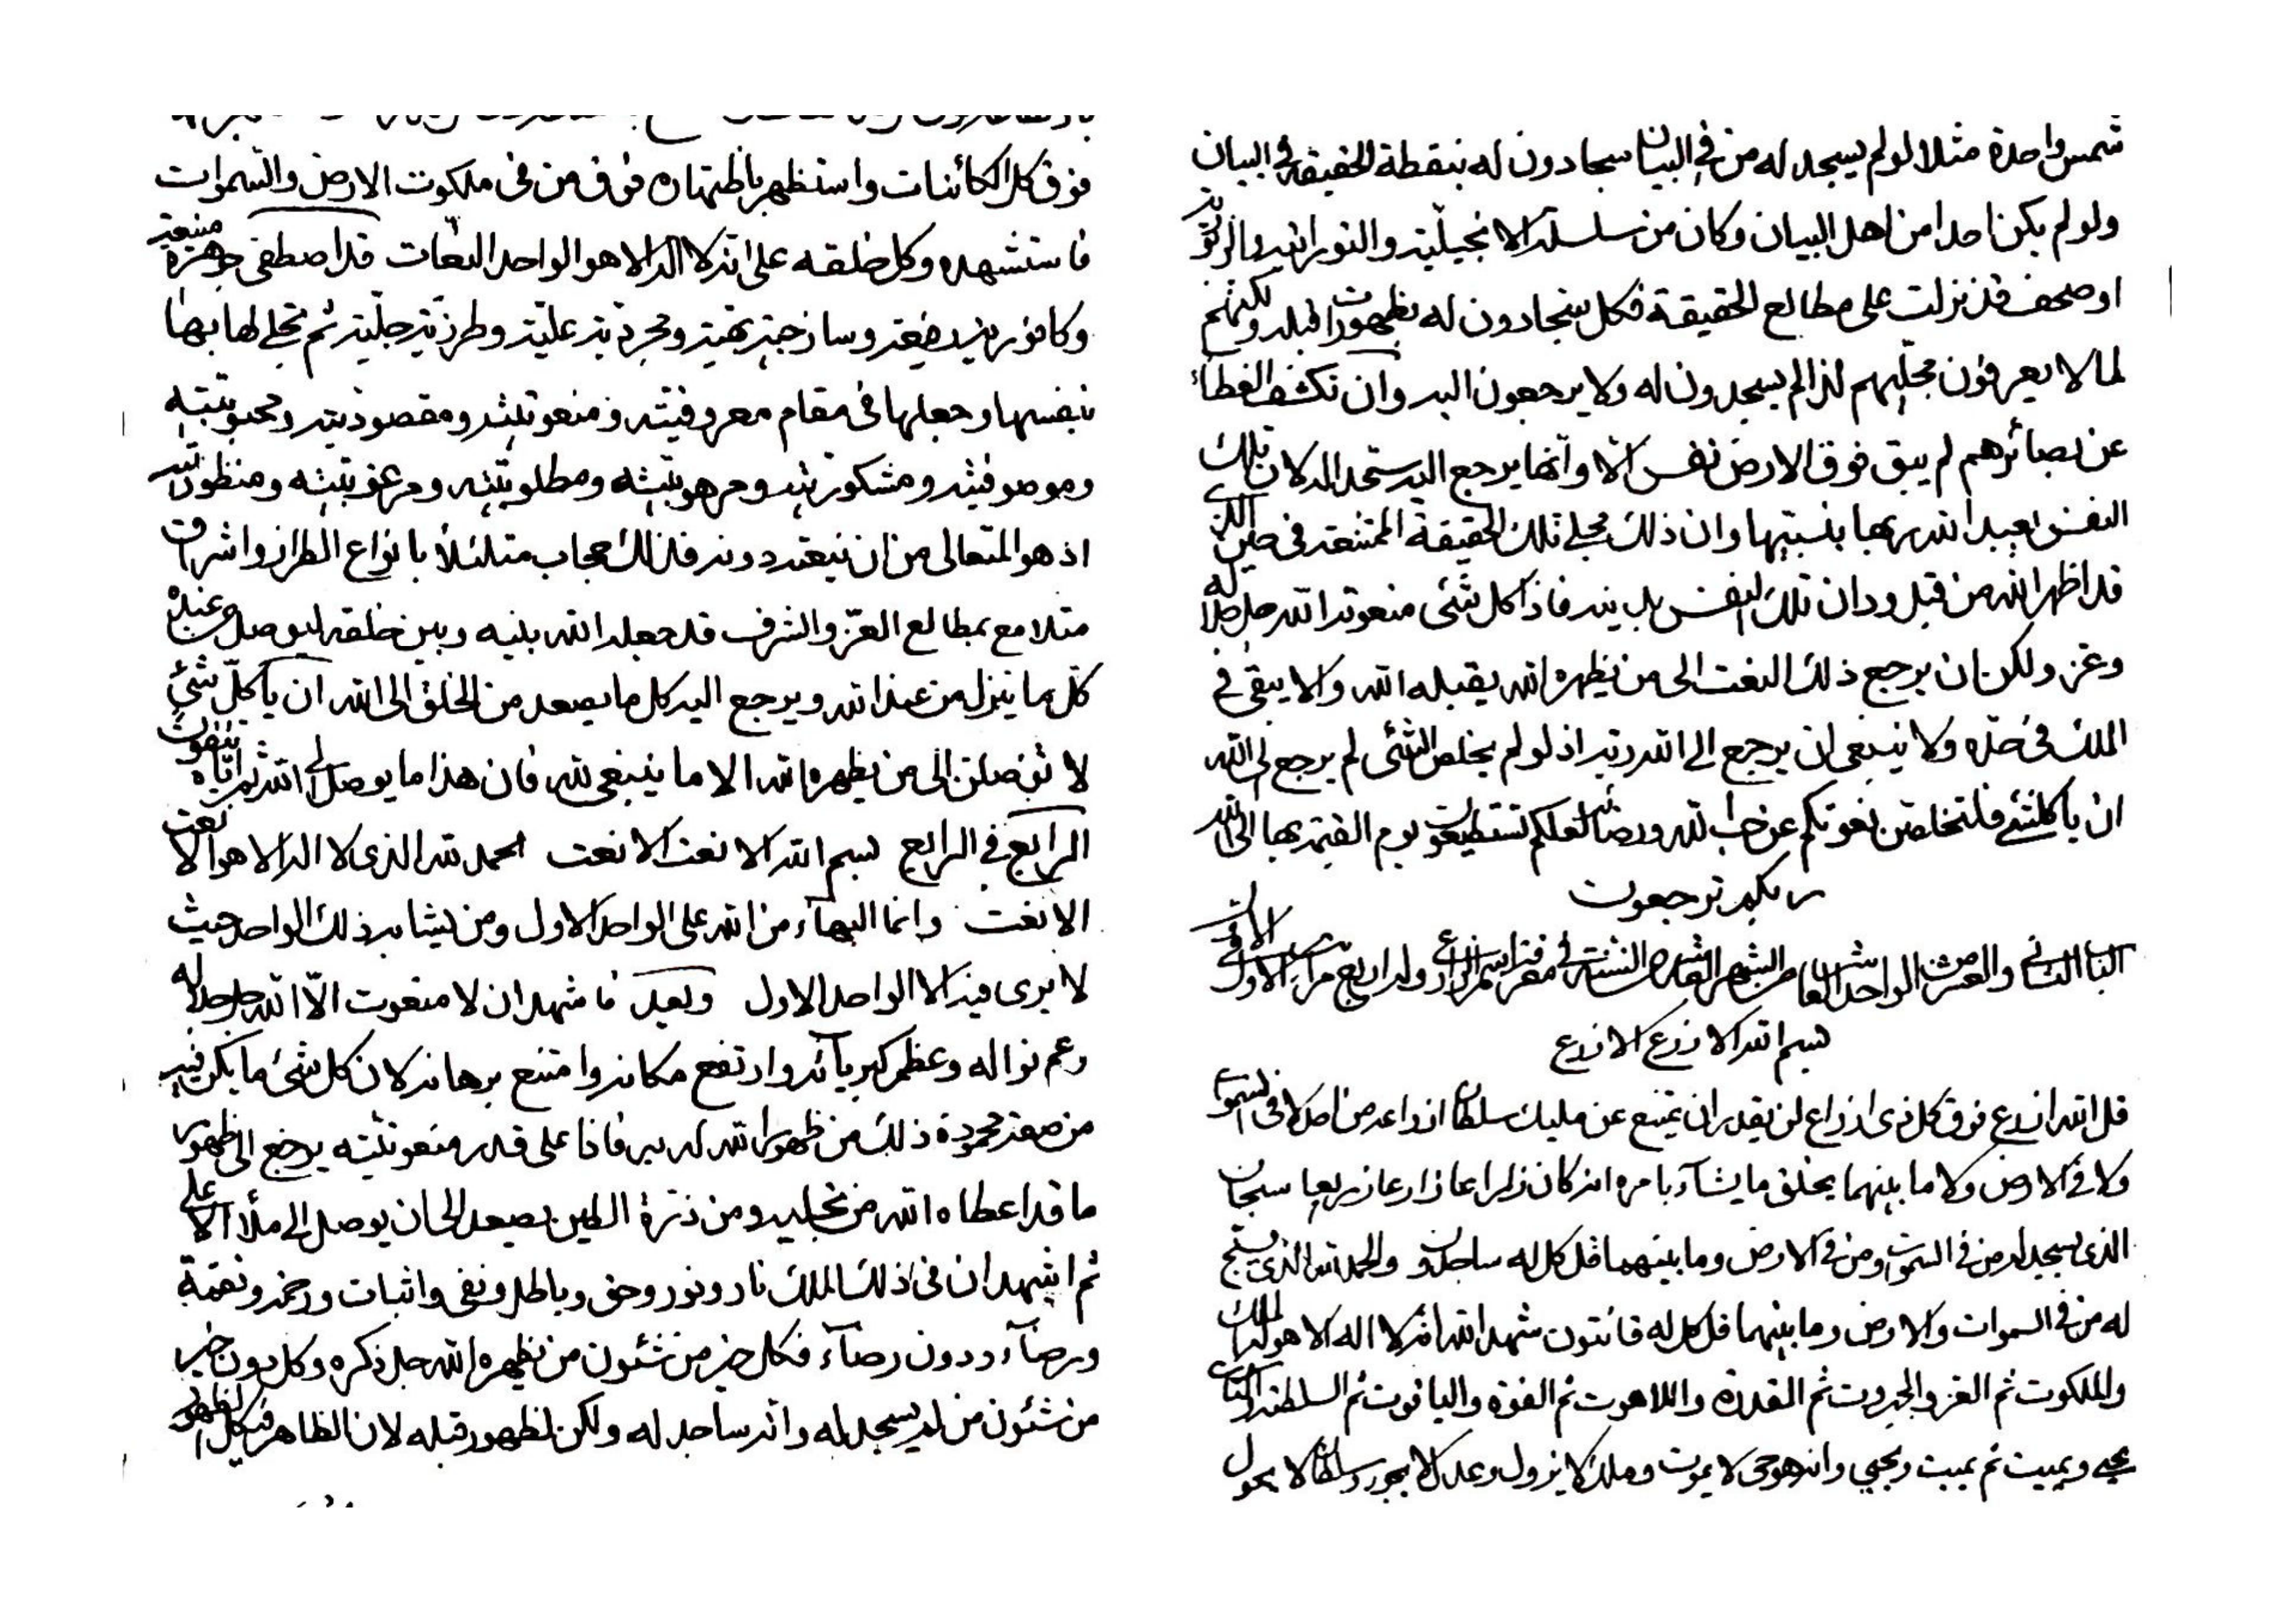 شمس واحدة مثلا لو لم يسجد له من في البيان سجادون له بنقطة الحقيقة في البيان
ولو لم يكن احدا من اهل البيان وكان من سلسلة الانجيلية والتورانية والزبورية
او صحف قد نزلت على مطالع الحقيقة فكل سجادون له بظهورات قبله ولكنهم
لما لا يعرفون مجليهم لذا لم يسجدون له ولا يرجعون اليه وان تكشف الغطاء
عن بصائرهم لم يبق فوق الارض نفس الا وانها يرجع اليه ستحمد الله لان تلك
النفس لعبد الله ربها بنسبتها وان ذلك مجلي تلك الحقيقة الممتنعة في حين الذي
قد اظهر الله من قبل ودان تلك النفس بدينه فاذا كل شئ منعوته الله جل جلاله
وعز ولكن ان يرجع ذلك النعت الى من يظهره الله يقبله الله والا يبقى في
الملك في حده ولا ينبغي ان يرجع الى الله ربه اذ لو لم يخلص الشئ لم يرجع الى الله
ان يا كلشئ فلتخلصن نعوتكم عن حب الله ورضائه لعلكم تستطيعون يوم القيمة بها الى الله
ربكم ترجعون
الباب الثاني والعشر من الواحد العاشر من الشهر العاشر من السنة في معرفة اسم الزارع وله اربع مراتب الاول في الاول
بسم الله الازرع الازرع
قل الله ازرع فوق كل ذي ازراع لن يقدر ان يمتنع عن مليك سلطان ازراعه من احد لا في السموات
ولا في الارض ولا ما بينهما يخلق ما يشآء بامره انه كان زارعا زارعا زريعا سبحان
الذي يسجد له من في السموات ومن في الارض وما بينهما قل كل له ساجدون والحمد لله الذي يسبح
له من في السموات والارض وما بينهما قل كل له قانتون شهد الله انه لا اله الا هو له الملك
والملكوت ثم العز والجبروت ثم القدرة واللاهوت ثم القوة والياقوت ثم السلطنة والناسوت
يحيي ويميت ثم يميت ويحيي وانه هو حي لا يموت وملك لا يزول وعدل لا يجور وسلطان لا يحول
فوق كل الكائنات واستظهر باظتهاره فوق من في ملكوت الارض والسموات
فاستشهده وكل خلقه على انه لا اله الا هو الواحد النعات قد اصطفى جوهرة منيعة
وكافورية رفيعة وساذجية بهية ومجردية علية وطرزية جلية ثم تجلى لها بها
بنفسها وجعلها في مقام معروفيته ومنعوتيته ومقصوديته ومحبوبيته
وموصوفيته ومشكوريته ومرهوبيته ومطلوبيته ومرغوبيته ومنظوريته
اذ هو المتعالي من ان ينعته دونه فلذلك حجاب متلئلأ بانواع الطراز واشراق
متلامع بمطالع العز والشرف قد جعله الله بينه وبين خلقه ليوصل من عنده
كل ما ينزل من عند الله ويرجع اليه كل ما يصعد من الخلق الى الله ان يا كل شئ
لا توصلن الى من يظهره الله الا ما ينبغي لله فان هذا ما يوصل الى الله ثم اياه تتقون
الرابع في الرابع بسم الله الانعت الانعت الحمد لله الذي لا اله الا هو الانعت
الانعت وانما البهآء من الله على الواحد الاول ومن يشابه ذلك الواحد حيث
لا يرى فيه الا الواحد الاول وبعد فاشهد ان لا منعوت الا الله جل جلاله
وعم نواله وعظم كبريآئه وارتفع مكانه وامتنع برهانه لان كل شئ ما يكن فيه
من صفة محمودة ذلك من ظهور الله له به فاذا على قدر منعوتيته يرجع الى ظهور
ما قد اعطاه الله من تجليه ومن ذرة الطين يصعد الى ان يوصل الى ملأ الاعلى
ثم اشهد ان في ذلك الملك نار ونور وحق وباطل ونفي واثبات ورحمة ونقمة
ورضآء ودون رضآء فكل خير من شئون من يظهره الله جل ذكره وكل دون خير
من شئون من لم يسجد له وانه ساجد له ولكن لظهور قبله لان الظاهر في كل الظهور